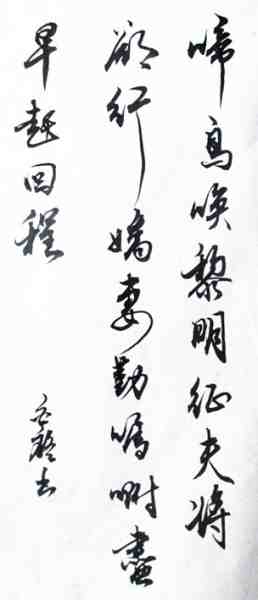 啼鳥喚黎明征夫將
欲行嬌妻勤囑咐盡
早趕回程
书